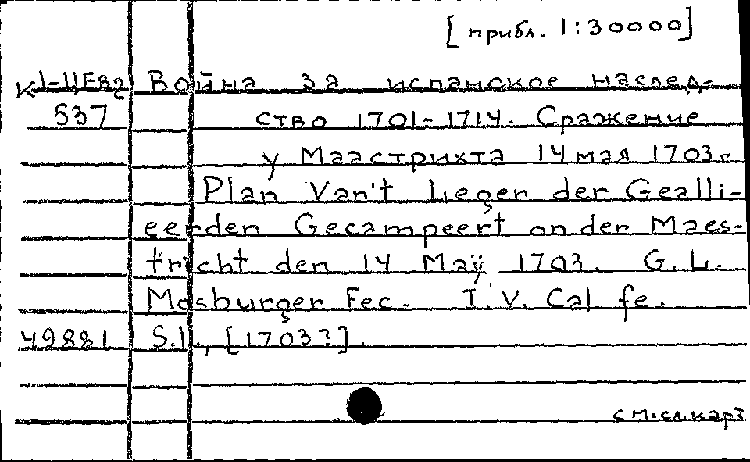 [прибл. 1:30000]
К1-ЦЕв2 Война за испанское наслед-
537 ство 1701-1714. Сражение
у Маастрихта 14 мая 1703г.
Plan Van't Leger der Gealli-
eerden Gecampeert onder Maes-
tricht den 14 Maÿ 1703. G.L.
Mosburger Fec. I.V. Cal fe.
49881 S.l., [1703?].
см.сл.карт